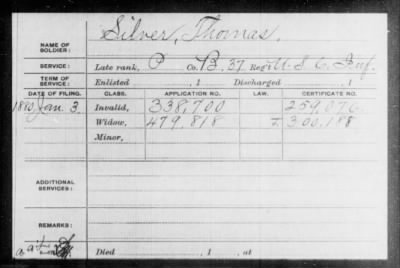 Silver, Thomas
NAME OF SOLDIER:
SERVICE: Late rank, P Co. B. 37 Reg't U. S. C. Inf.
TERM OF SERVICE: Enlisted , 1 Discharged , 1
DATE OF FILING. CLASS. APPLICATION NO. LAW. CERTIFICATE NO.
1880 Jan. 3 Invalid, 338,700 259,076
Widow, 479,818 300,188
Minor,
ADDITIONAL SERVICES:
REMARKS:
Died , 1 , at